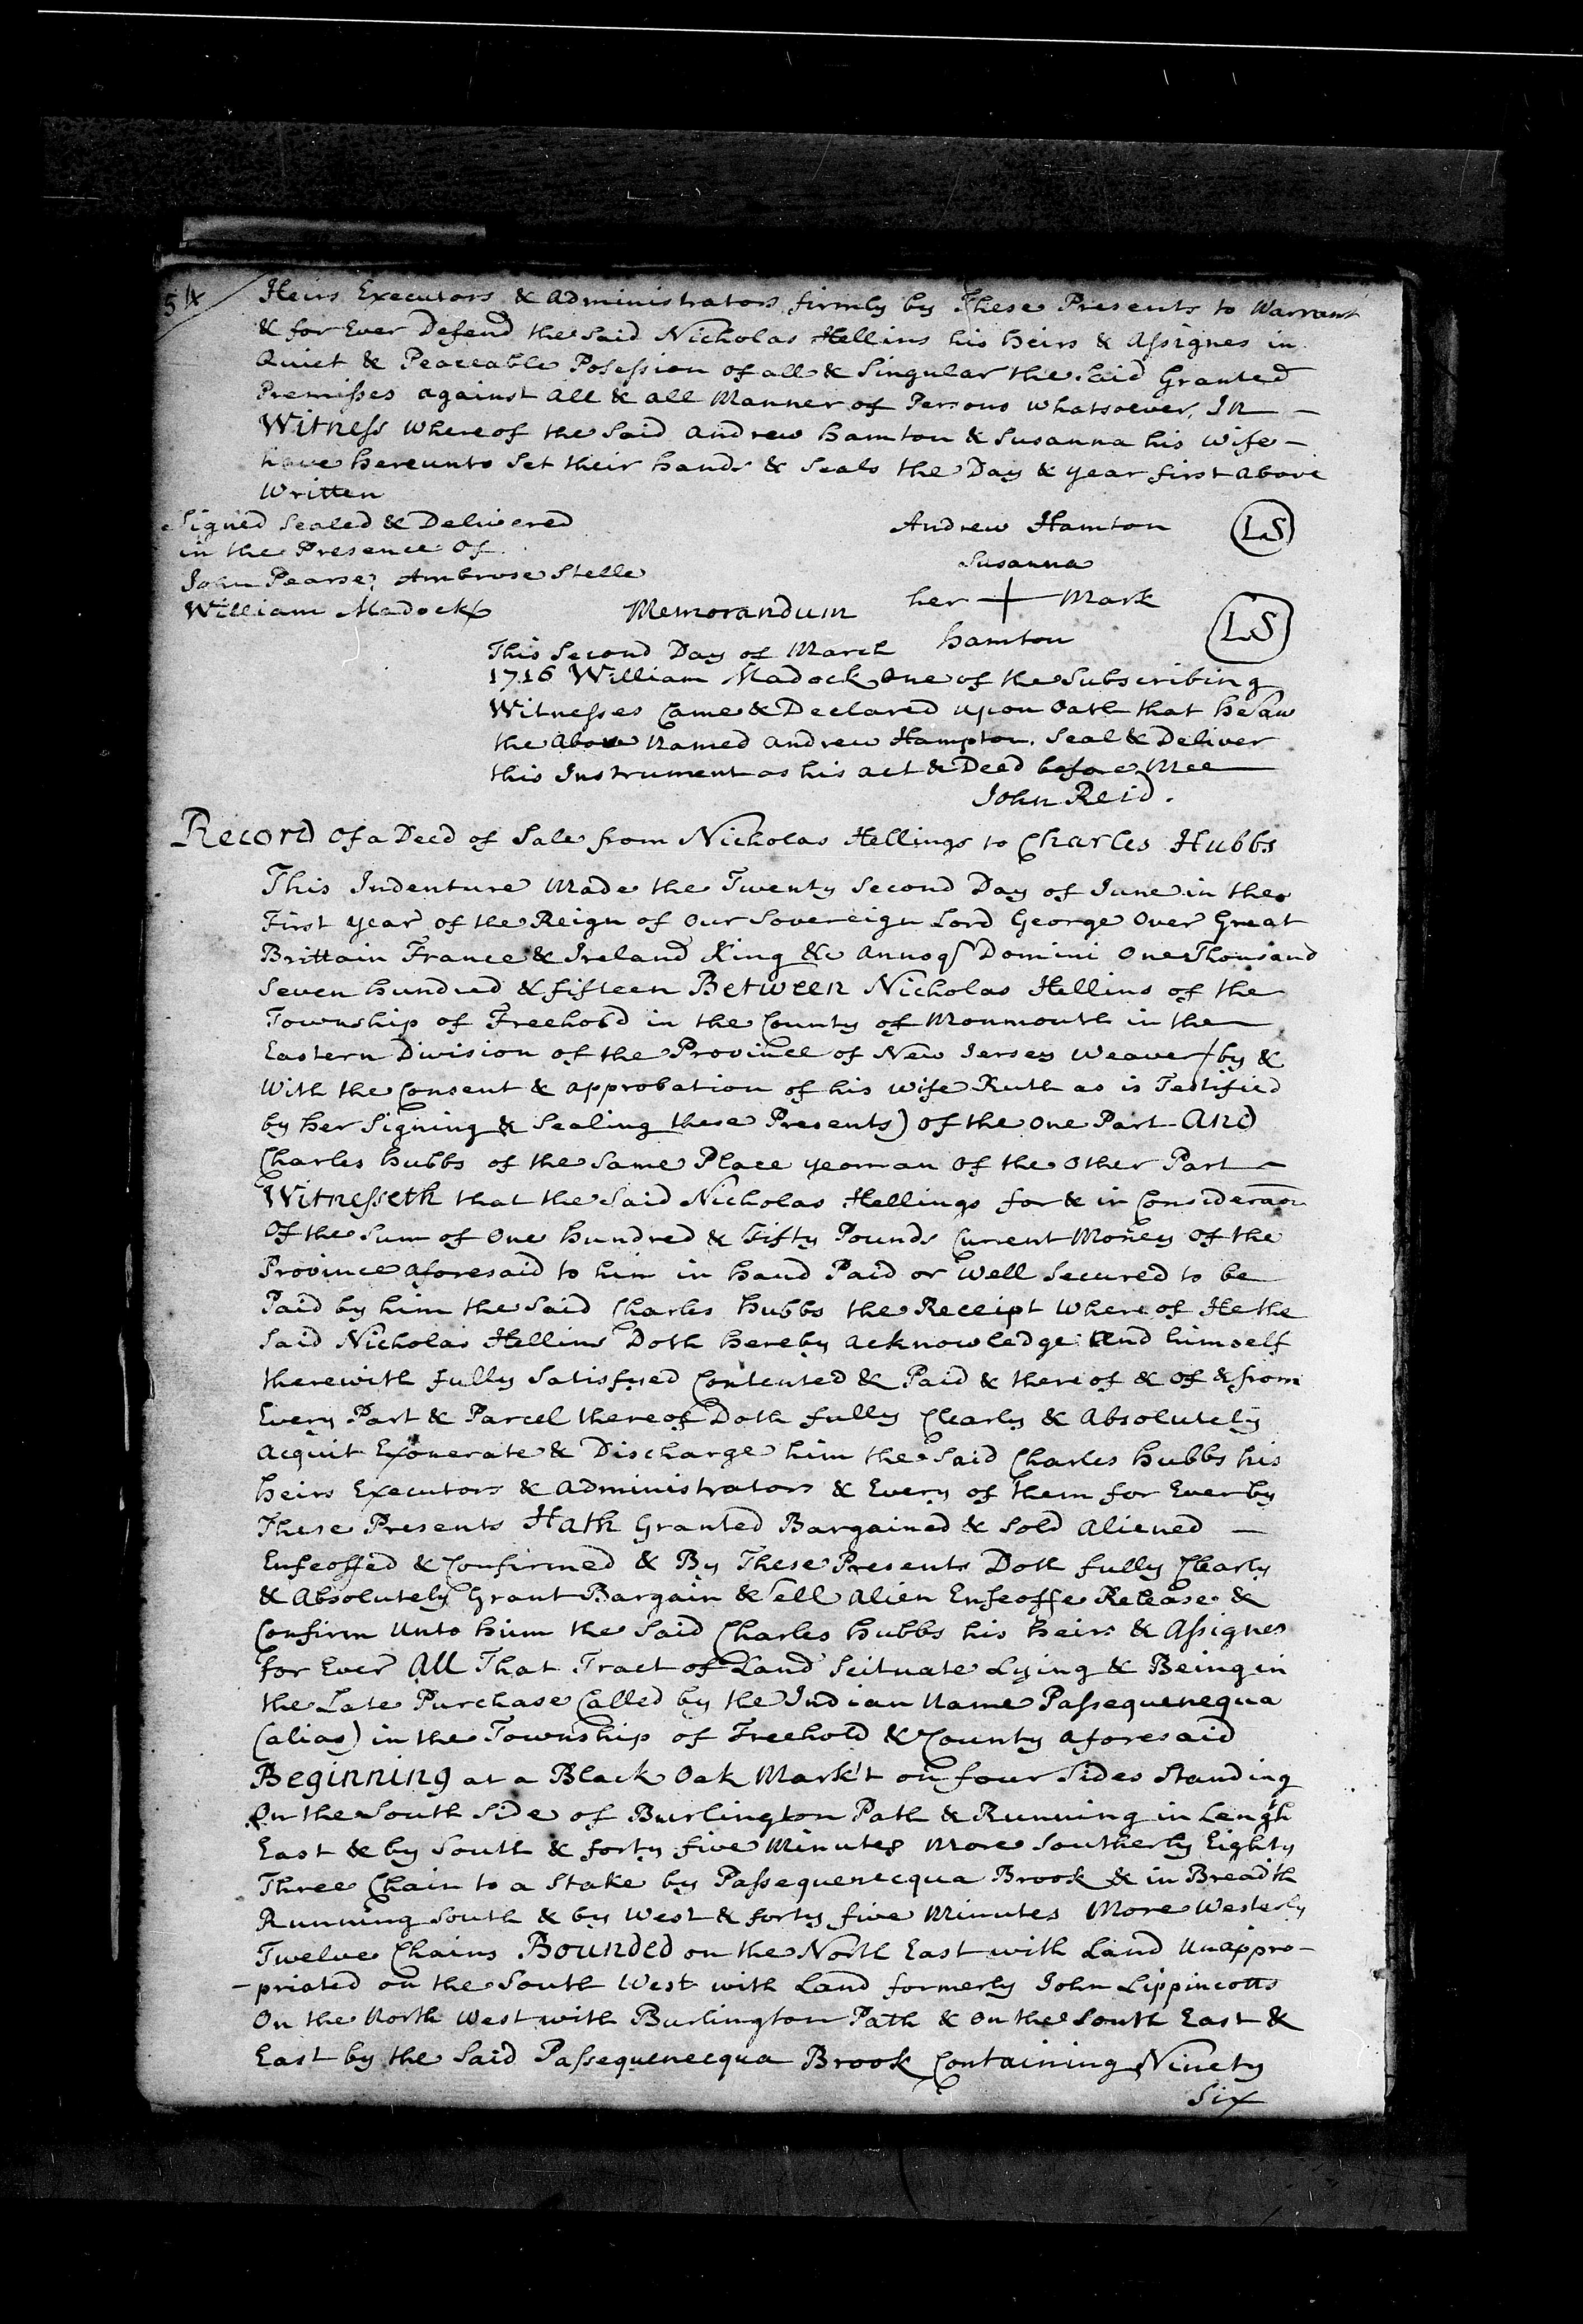 54
Heirs Executors & Administrators firmly by These Presents to Warrant
& for Ever Defend the Said Nicholas Hellins his heirs & Assignes in
Quiet & Peaceable Posession of all & Singular the Said Granted
Premisses against all & all Manner of Persons Whatsoever, In —
Witness Whereof the Said Andrew Hamton & Susanna his Wife —
have hereunto Set their hands & Seals the Day & year first above
Written
Signed Sealed & Delivered
in the Presence of
John Pearse, Ambrose Stelle
William Madock
Andrew Hamton (L.S)
Susanna
her + Mark
Hamton (L.S)
Memorandum
This Second Day of March
1716 William Madock One of the Subscribing
Witnesses Came & Declared upon Oath that he Saw
the Above Named Andrew Hampton. Seal & Deliver
this Instrument as his act & Deed before Mee
John Reid.
Record Of a Deed of Sale from Nicholas Hellings to Charles Hubbs
This Indenture Made the Twenty Second Day of June in the
First year of the Reign of Our Sovereign Lord George Over Great
Brittain France & Ireland King &c Annoq Domini One Thousand
Seven hundred & fifteen Between Nicholas Hellins of the
Township of Freehold in the County of Monmouth in the
Eastern Division of the Province of New Jersey Weaver (by &
With the Consent & approbation of his Wife Ruth as is Testified
by her Signing & Sealing these Presents) of the one Part And
Charles hubbs of the Same Place yeoman Of the Other Part —
Witnesseth that the Said Nicholas Hellings for & in Consideraon
Of the Sum of One hundred & Fifty Pounds Current Money Of the
Province aforesaid to him in hand Paid or Well Secured to be
Paid by him the Said Charles hubbs the Receipt Where of He the
Said Nicholas Hellins Doth hereby acknowledge And himself
therewith fully Satisfyed Contented & Paid & there of & Of & from
Every Part & Parcel thereof Doth fully Clearly & Absolutely
Acquit Exonerate & Discharge him the Said Charles hubbs his
heirs Executors & Administrators & Every of them for Ever by
These Presents Hath Granted Bargained & Sold Aliened —
Enfeoffed & Confirmed & By These Presents Doth fully Clearly
& Absolutely Grant Bargain & Sell Alien Enfeoffe Release &
Confirm Unto him the Said Charles hubbs his heirs & Assignes
for Ever All That Tract of Land Scituate Lying & Being in
the Late Purchase Called by the Indian Name Passequenequa
(alias) in the Township of Freehold & County aforesaid
Beginning at a Black Oak Mark't on four Sides Standing
On the South Side of Burlington Path & Running in Length
East & by South & forty five Minutes More Southerly Eighty
Three Chain to a Stake by Passequenecqua Brook & in Breadth
Running South & by West & forty five Minutes More Westerly
Twelve Chains Bounded on the North East with Land Unappro-
-priated on the South West with Land formerly John Lippincotts
On the North West with Burlington Path & On the South East &
East by the Said Passequenecqua Brook Containing Ninety
Six